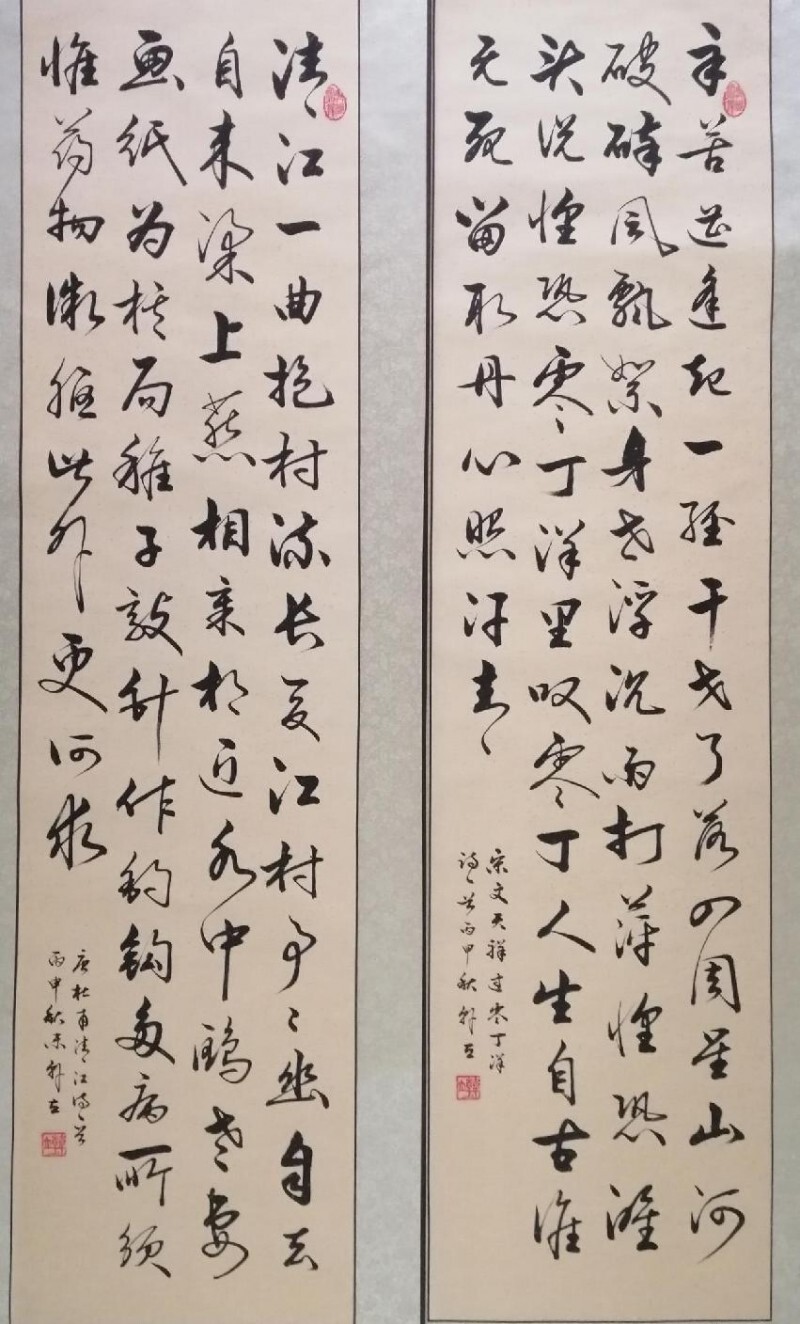 辛苦遭逢起一经干戈了落四周星山河
破碎风飘絮身世浮沉雨打萍惶恐滩
头说惶恐零丁洋里叹零丁人生自古谁
无死留取丹心照汗青
宋文天祥过零丁洋
诗一首丙申秋
清江一曲抱村流长夏江村事事幽自去
自来梁上燕相亲相近水中鸥老妻
画纸为棋局稚子敲针作钓钩多病所须
惟药物微躯此外更何求
唐杜甫清江诗一首
丙申秋末